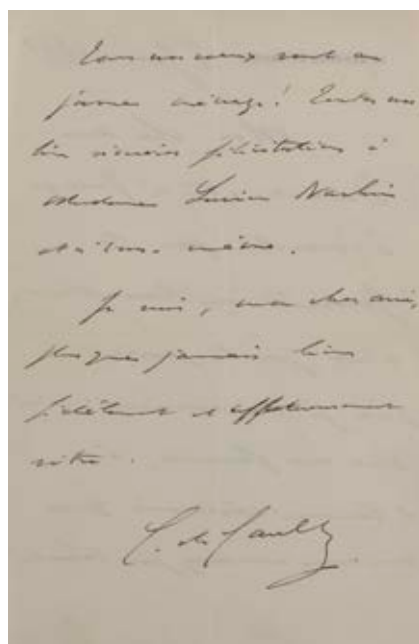 Tous nos voeux vont au
jeune ménage ! Toutes nos
bien sincères félicitations à
Madame Lucien Nachin
et à vous-même.
Je suis, mon cher ami,
plus que jamais bien
fidèlement et affectueusement
vôtre.
C. de Gaulle